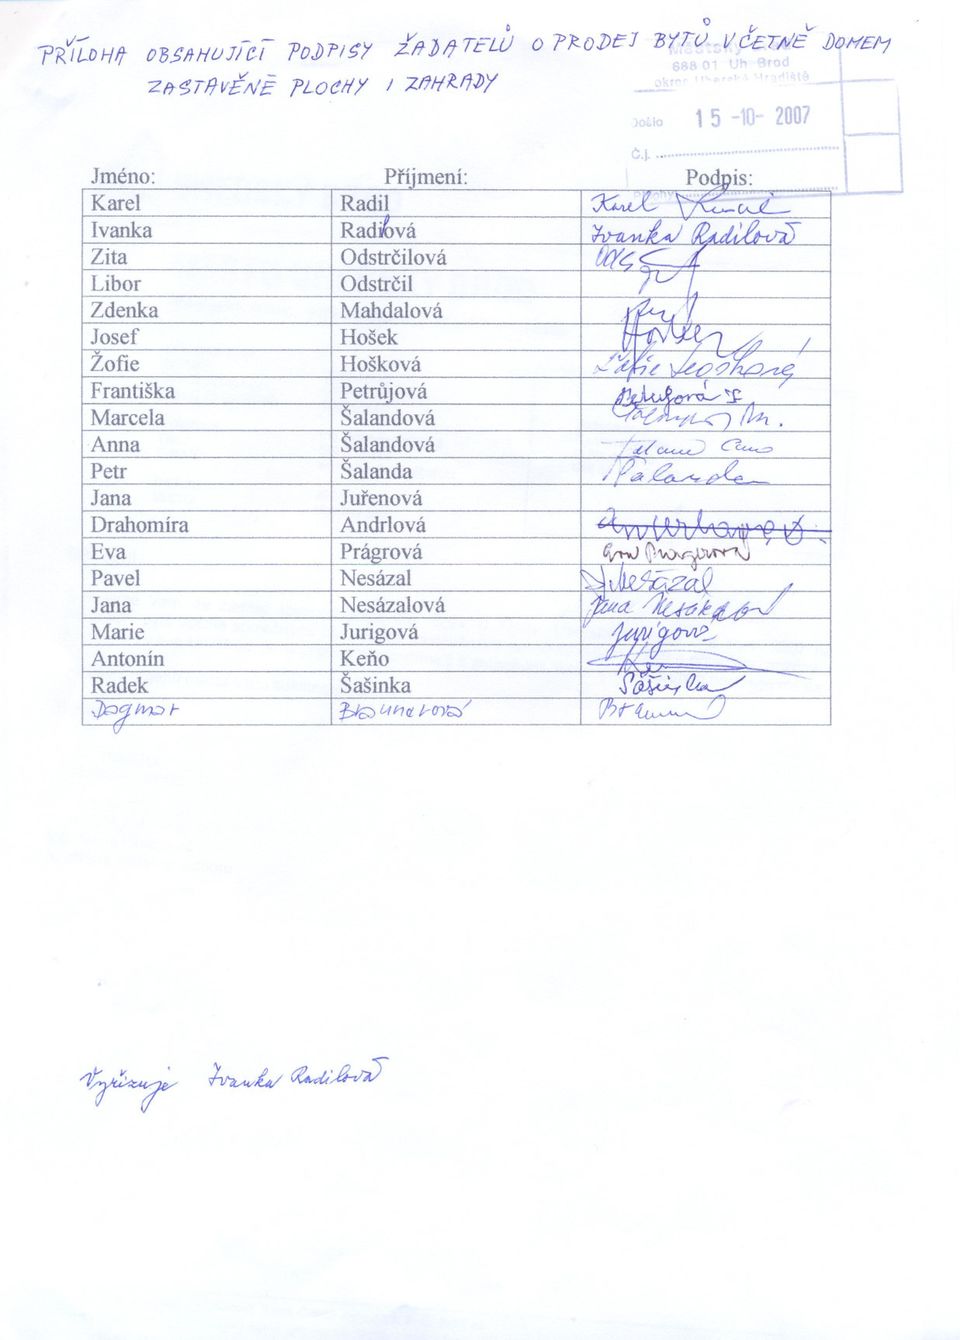 PŘÍLOHA OBSAHUJÍCÍ PODPISY ŽADATELŮ O PRODEJ BYTŮ VČETNĚ DOMEM
ZASTAVĚNÉ PLOCHY I ZAHRADY
Městský
688 01 Uh. Brod
okres Uherské Hradiště
Došlo 15 -10- 2007
Č.j.
Jméno: Příjmení: Podpis:
Karel Radil Karel
Ivanka Radilová Ivanka Radilová
Zita Odstrčilová
Libor Odstrčil
Zdenka Mahdalová
Josef Hošek
Žofie Hošková Žofie Hošková
Františka Petrůjová
Marcela Šalandová
Anna Šalandová
Petr Šalanda Šalanda
Jana Juřenová
Drahomíra Andrlová
Eva Prágrová Eva Prágrová
Pavel Nesázal Nesázal
Jana Nesázalová Jana
Marie Jurigová Jurigová
Antonín Keňo
Radek Šašinka Šašinka
Dagmar Braunerová
Vyřizuje Ivanka Radilová